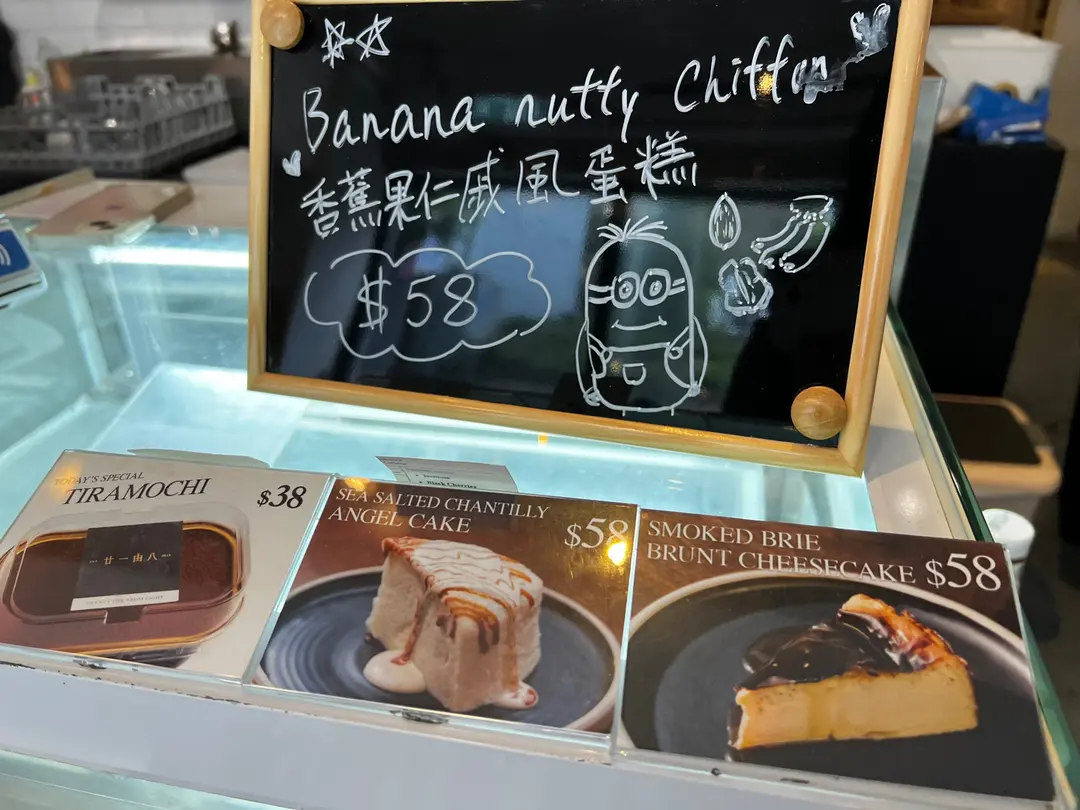 Banana nutty Chiffon
香蕉果仁戚風蛋糕
$58
Black Cherries
TODAY'S SPECIAL
TIRAMOCHI
$38
廿一由八
SEA SALTED CHANTILLY
ANGEL CAKE
$58
SMOKED BRIE
BRUNT CHEESECAKE $58